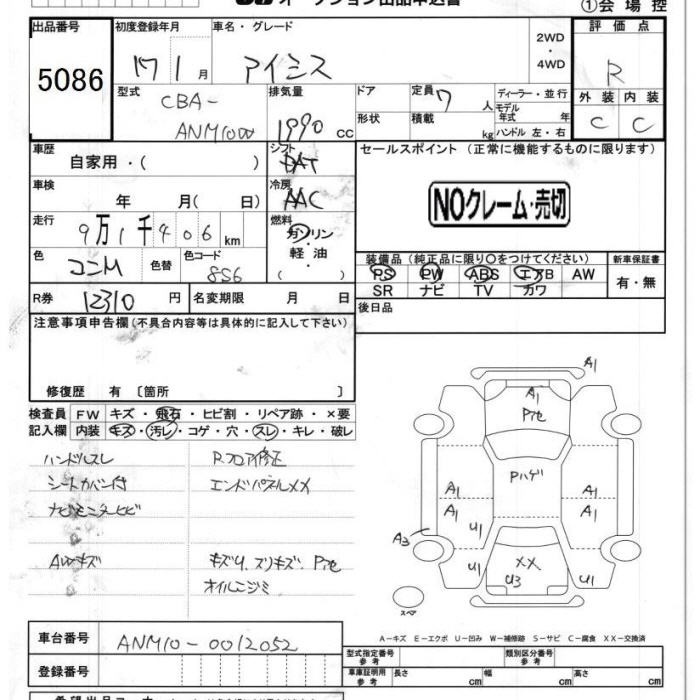 オークション出品申込書 ①会場控
出品番号 初度登録年月 車名・グレード 2WD・4WD 評価点
5086 17 1月 アイシス R
型式 排気量 ドア 定員 7 人 ディーラー・並行 外装 内装
CBA-ANM10W 1990 cc 形状 積載 kg モデル年式 年 ハンドル 左・右 C C
車歴 自家用・( ) シフト DAT セールスポイント (正常に機能するものに限ります)
車検 年 月( 日) 冷房 AAC NOクレーム・売切
走行 9万1千406km 燃料 ガソリン
軽油・( )
色 コンM 色替 色コード 8S6
装備品(純正品に限り○をつけてください) 新車保証書
PS PW ABS エアB AW 有・無
SR ナビ TV カワ
R券 12310 円 名変期限 月 日 後日品
注意事項申告欄(不具合内容等は具体的に記入して下さい)
修復歴 有 〔箇所 〕
検査員 FW キズ・飛石・ヒビ割・リペア跡・×要
記入欄 内装 キズ・汚レ・コゲ・穴・スレ・キレ・破レ
ハンドルスレ Rフロア修正
シートカバー付 エンドパネルメメ
ナビモニターヒビ
AWキズ キズU、スリキズ、Pアセ
オイルニジミ
A1
A1
Pアセ
Pハゲ
A1 A1
A1 A1
U1
A3
U1 XX U1
U3
スペア
A-キズ E-エクボ U-凹み W-補修跡 S-サビ C-腐食 XX-交換済
車台番号 ANM10-0012052
登録番号
型式指定番号 参考 類別区分番号 参考
車庫証明用 参考 長さ cm 幅 cm 高さ cm
希望出品コーナー